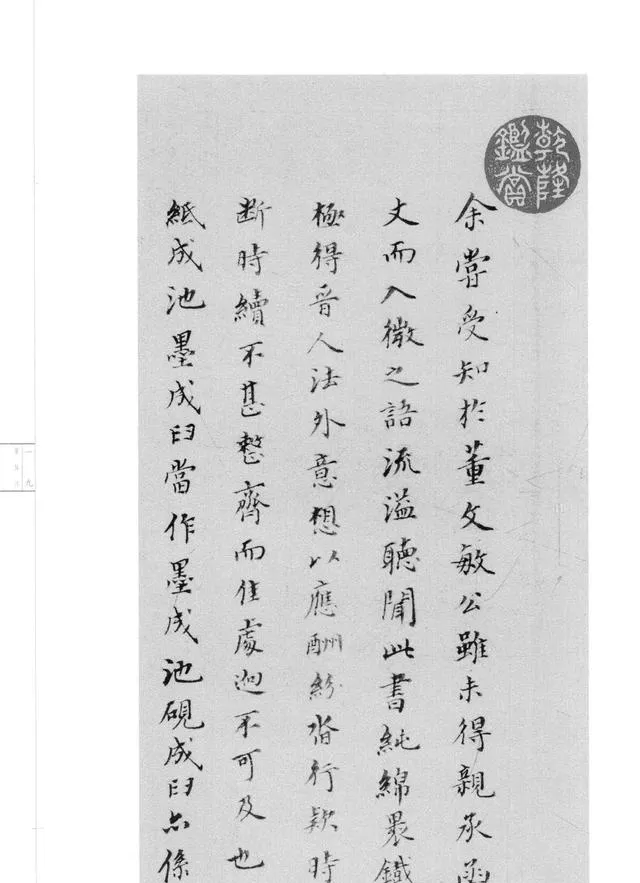 乾隆
鑑賞
余嘗受知於董文敏公雖未得親承函
丈而入微之語流溢聽聞此書純綿裹鐵
極得晉人法外意想以應酬紛沓行款時
斷時續不甚整齊而佳處迥不可及也
紙成池墨成臼當作墨成池硯成臼亦係
一九